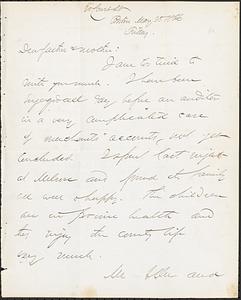 Boston May 25 1866
Friday.
Dear father & mother:
I am too tired to
write you much. I have been
engaged all day before an auditor
in a very complicated case
of merchants' accounts, not yet
concluded. I spent last night
at Melrose and found the family
all well & happy. The children
are in prime health and
they enjoy the country life
very much.
Mr. and